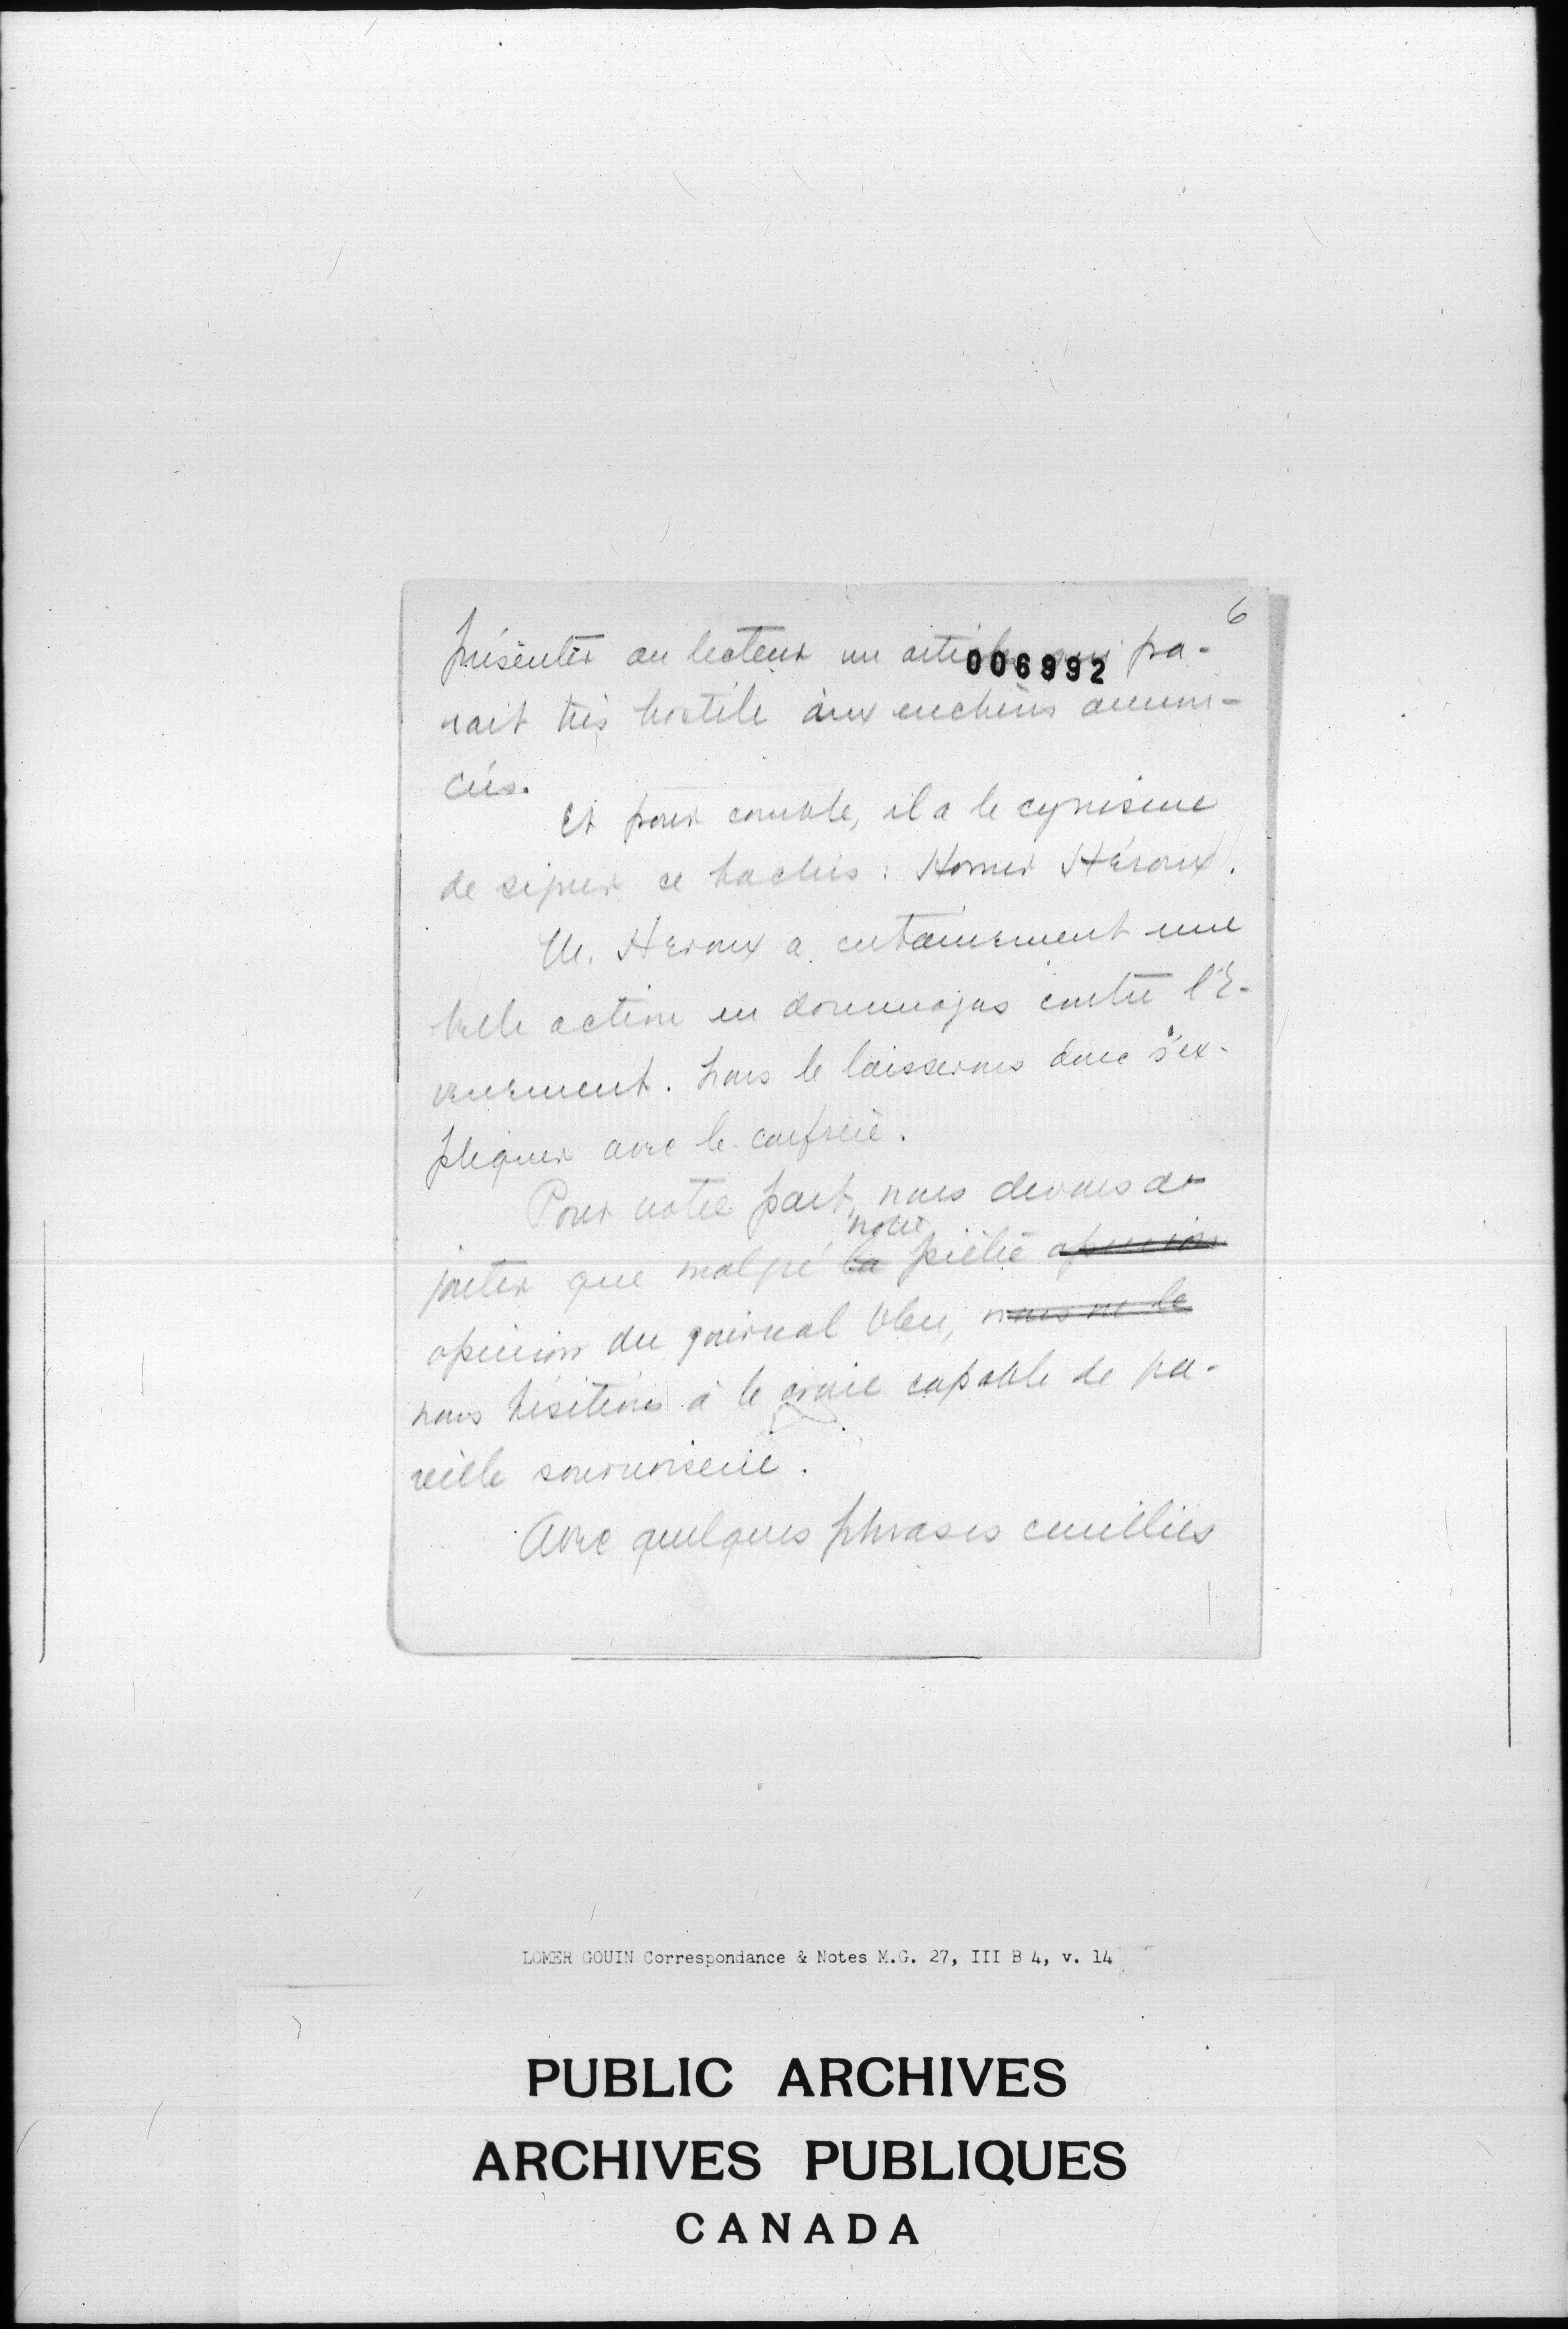 6
présenter au lecteur un article qui pa-
006992
rait très hostile aux enchères annon-
cées.
Et pour comble, il a le cynisme
de signer ce hachis : Homer Héroux.
M. Heroux a certainement une
belle action en dommages contre l'E-
venement. Nous le laisserons donc s'ex-
pliquer avec le confrère.
Pour notre part, nous devons a-
notre
jouter que malgré la piètre opinion
opinion du journal bleu, nous ne le
nous hésitions à le croire capable de pa-
reille sournoiserie.
Avec quelques phrases cueillies
LOMER GOUIN Correspondance & Notes M.G. 27, III B 4, v. 14
PUBLIC ARCHIVES
ARCHIVES PUBLIQUES
CANADA